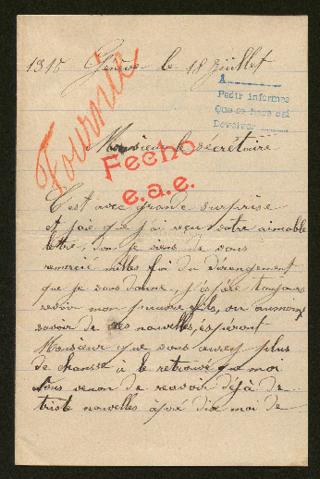 1915 Genève le 18 juillet
A
Pedir informes
Que se hace así
Devolver
Fournié
Monsieur le sécrétaire
Fecho
e.a.e.
C'est avec grande surprise
et joie que j'ai reçu votre aimable
lettre, don je viens de vous
remercié milles foi du dérengement
que je vous donne, j'espéle toujours
revoir mon pauvre fils, ou au moins
savoir de ses nouvelles, espérant
Monsieur que vous aurez plus
de chansse à le retrouvé que moi
Nous venon de recevoir déjà de
triste nouvelles après dix moi de